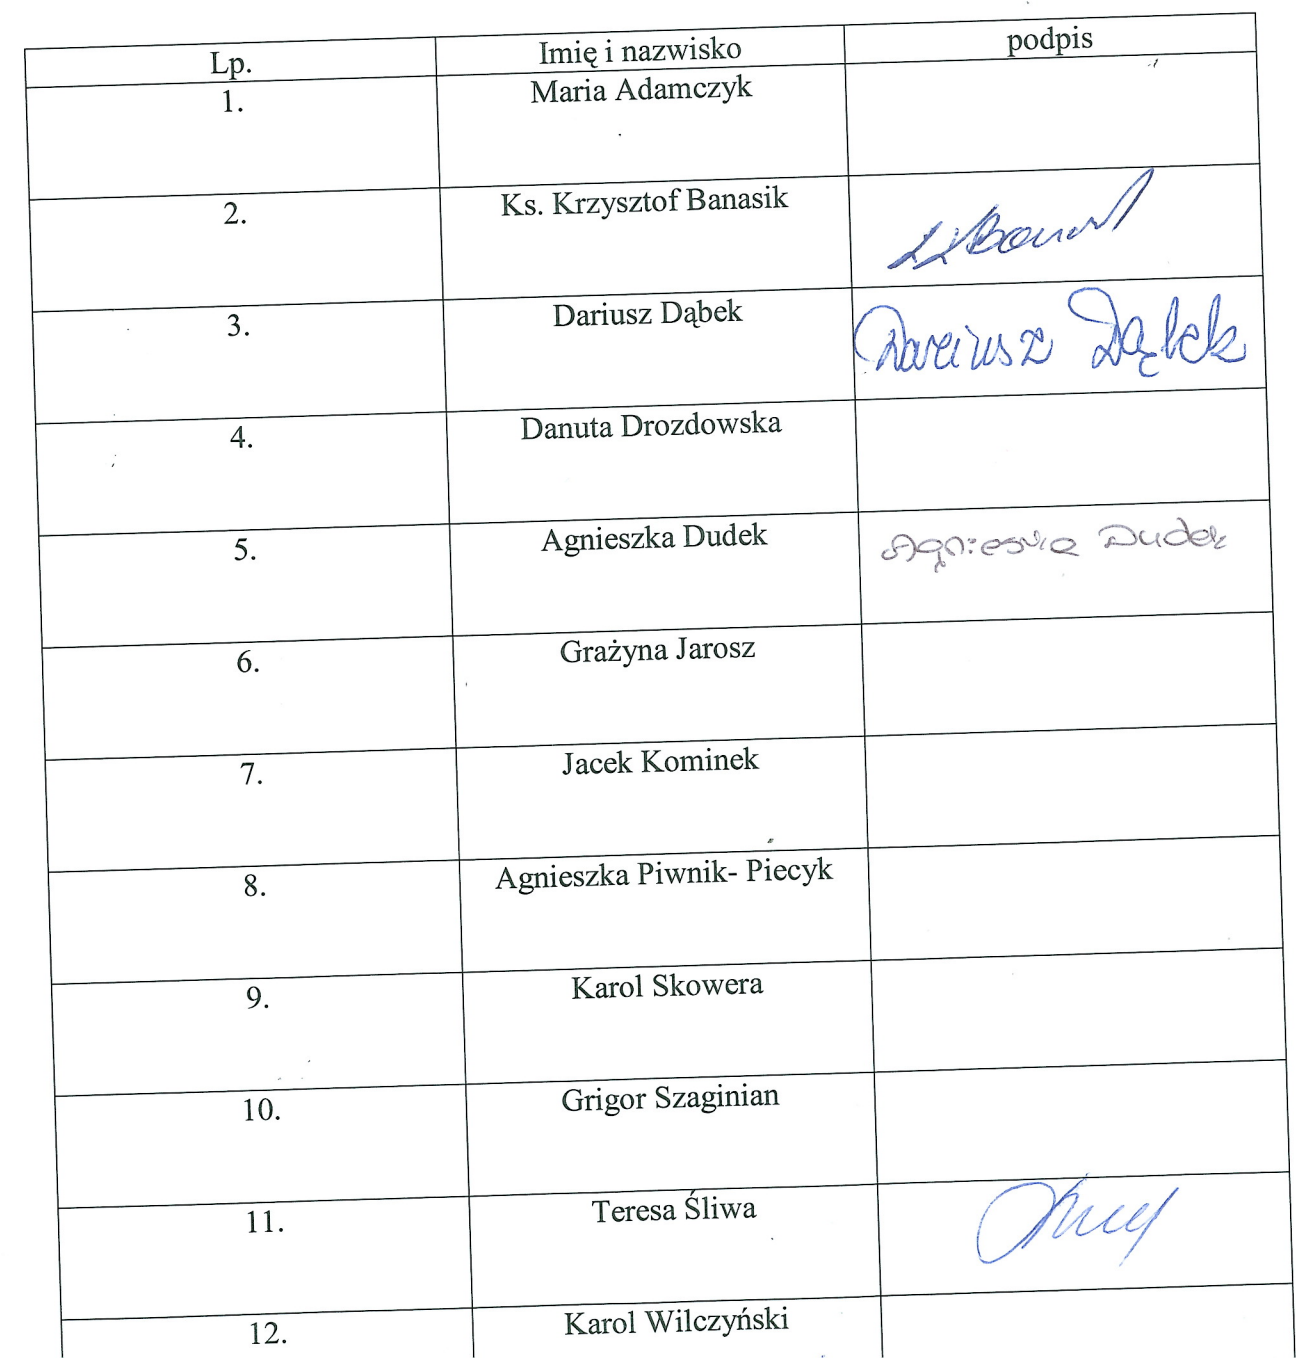 Lp. Imię i nazwisko podpis
1. Maria Adamczyk
2. Ks. Krzysztof Banasik
3. Dariusz Dąbek Dariusz Dąbek
4. Danuta Drozdowska
5. Agnieszka Dudek Agnieszka Dudek
6. Grażyna Jarosz
7. Jacek Kominek
8. Agnieszka Piwnik- Piecyk
9. Karol Skowera
10. Grigor Szaginian
11. Teresa Śliwa
12. Karol Wilczyński